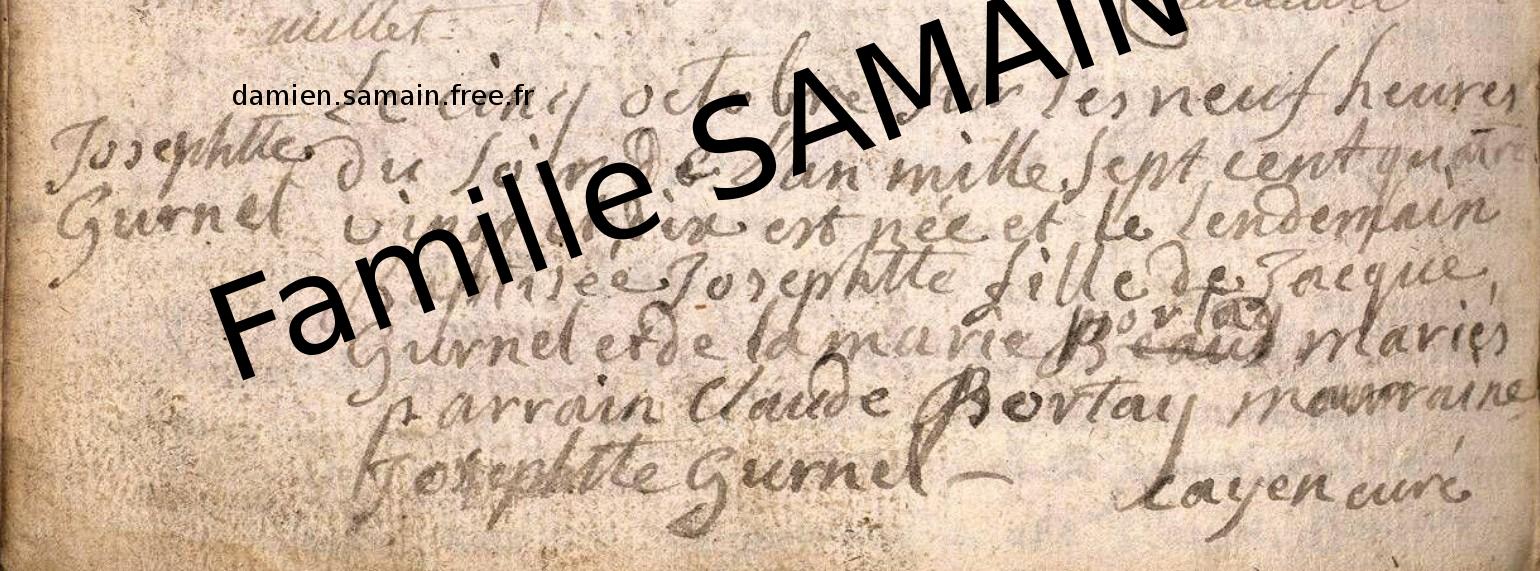 millet
damien.samain.free.fr
Famille SAMAIN
Le cinq octobre sur les neuf heures
Josephtte
du soir de l'an mille sept cent quatre
Gurnel
vingt dix est née et le lendemain
baptisée Josephtte fille de Jacque
Bortay
Gurnel et de la marie Beaud mariés
parrain Claude Bortay marraine
Josephtte Gurnel
cayen curé